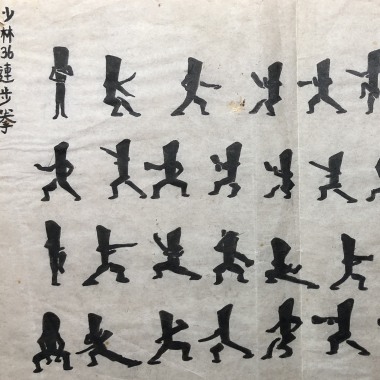 少林36連步拳